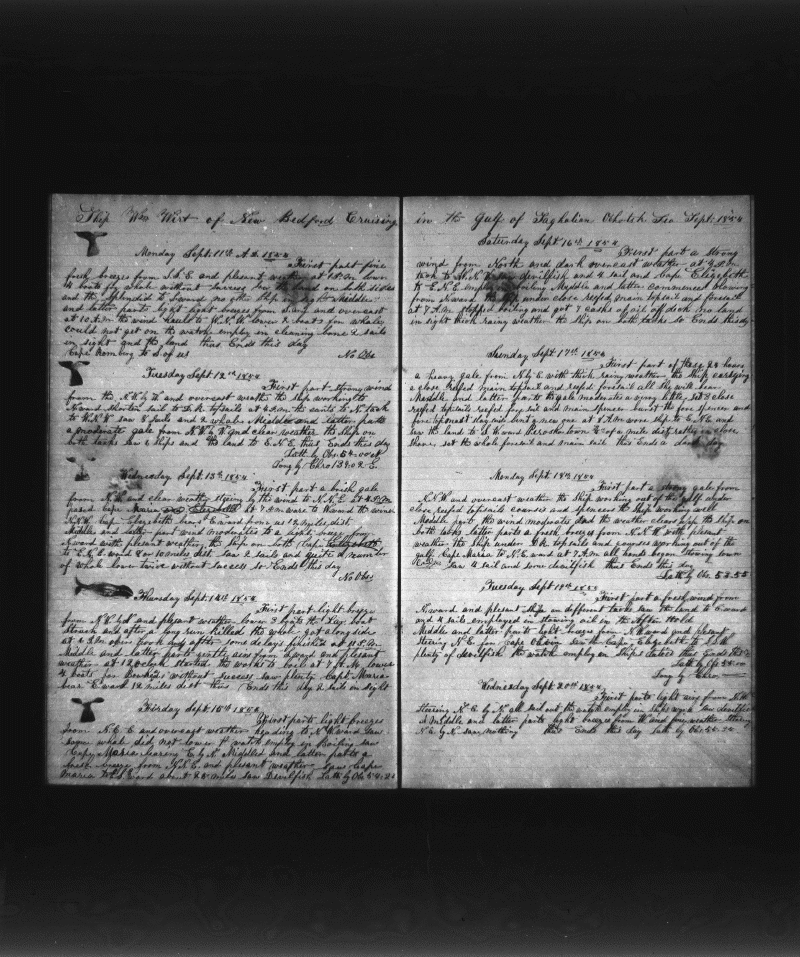 Ship Wm Wirt of New Bedford Cruising
Monday Sept. 11th A.D. 1854
First part fine
fresh breezes from S.S.E and pleasent weather at 1 P.M. down
4 boats for whale without success saw the land on both sides
and the Splendid to Sward no other ship in sight Middle
and latter parts light breezes from and overcast
at 10 A.M. the wind to W.N.W. lower 2 boats for whales
could not get on the watch employ in cleaning bone 2 sails
in sight and the land thus Ends this day
Cape Romberg to S of us No Obs
Tuesday Sept 12th 1854
First part strong wind
from the N.W by W and overcast weather the ship working to
Nward Shorten sail to D.R. topsails at 4 P.M. the saw 2 to N. tack
to W.S.W saw 8 sails and 2 whales Middle and latter parts
a moderate gale from N.W by W and clear weather the ship on
both tacks saw 4 ships and the land to E.N.E thus Ends this day
Latt by Obs 54.00 N
Long by Chro 139.02 E.
Wednesday Sept. 13th 1854
First part a brisk gale
from N.W and clear weather by the wind to N.N.E at 4 P.M.
passed Cape Maria at 7 P.M. ware to Wward the wind
N.N.W. Cape Elizabeth bears Eward from us 12 miles dist
Middle and latter part wind moderates to a light breeze from
Nward with plesent weather the ship on both Cape Elizabeth
to E.S.E. ward 8 or 10 miles dist saw 2 sails and quite a number
of whale lower twice without success so Ends this day
No Obs
Thursday Sept. 14th 1854
First part light breeze
from N.W. by W and plesent weather lower 3 boats the Lar. boat
struck and after a long run killed the whale got along side
at 4 P.M. open forth and after some delays finished at 11 P.M.
Middle and latter parts gentle airs from ward and pleasent
weather at 12 Oclock started the works to boil at 7 A.M. lowers
4 boats for Bowheads without success saw plenty Cape Maria
bear Eward 12 miles dist thus Ends this day 2 sails in sight
Firday Sept 15th 1854
First parts light breezes
from N.E. E and overcast weather heading to N. Wward saw
some whale did not lower watch employ in Boiling saw
Cape Maria bearing E by N. Middle and latter parts a
fresh breeze from N.N.E. and pleasent weather saw Cape
Maria to S. Eward about 20 miles saw Devilfish Latt by Obs 54.22
in the Gulf of Saghalian Ochotck Sea Sept. 1854
Saturday Sept 16th 1854
First part a strong
wind from North and dark overcast weather at 4 P.M.
tack to W.N.W. devilfish and 4 sail and Cape Elizabeth
to E.N.E employ in boiling Middle and latter commenced blowing
from Nward the ship under close reefed main topsail and foresail
at 7 A.M. stopped boiling and got 7 casks of oil off deck no land
in sight thick rainy weather the ship on both tacks so Ends this day
Sunday Sept 17th 1854
First part of these 24 hours
a heavy gale from N by E with thick rainy weather the ship carrying
a close reefed main topsail and reefed foresail all she will bear
Middle and latter parts the gale moderates a very little, set 3 close
reefed topsails reefed fore sail and main spencer burst the fore spencer and
fore topmast stay sail bent a new one at 8 A.M. wore ship to E.N.E and
saw the land to S. Wward in close
shore set the whole foresail and main sail thus Ends a day
Monday Sept 18th 1854
First part a strong gale from
N.N.W and overcast weather the ship working out of the gulf under
close reefed topsails courses and spencers the ship working well
Middle part the wind moderates and the weather clears up the ship on
both tacks latter parts a fresh breeze from N.N.W. with plesent
weather the ship under D.R topsails and courses working out of the
gulf Cape Maria to N.E. ward at 7 A.M. all hands began stowing down
saw 4 sail and some devilfish thus Ends this day
Latt by Obs. 53.55
Tuesday Sept 19th 1854
First part a fresh wind from
Nward and pleasent ship on different tacks saw the land to Eward
and 4 sails employed in stowing oil in the After Hold
Middle and latter parts light breeze from N. Wward and plesent
stering N.E. for saw the Cape Elizabeth to E.S.E.
plenty of devilfish the watch employ in Ships duties thus Ends this
Latt by Obs
Long by Chron
Wednesday Sept 20th 1854
First parts light airs from N.W.
steering N.E. by N. all sail out the watch employ in ships work saw devilfish
Middle and latter parts light breeze from W and fine weather steering
N.E by N. saw nothing thus Ends this day Latt by Obs